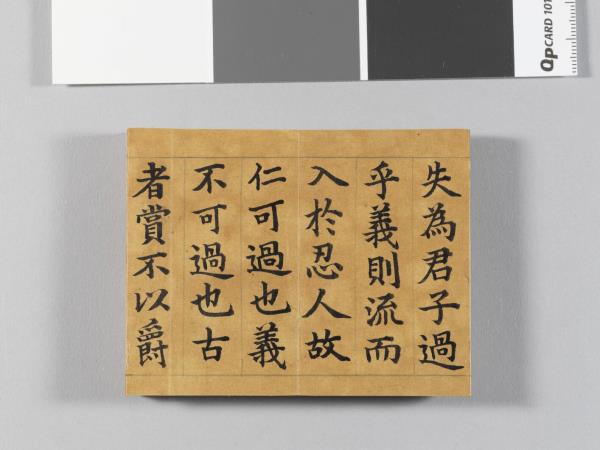 失為君子過
乎義則流而
入於忍人故
仁可過也義
不可過也古
者賞不以爵
QPCARD 101